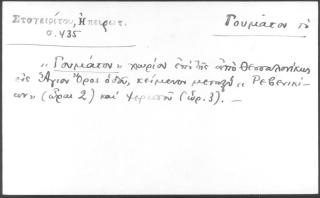 Σταγειρίτου, Ηπειρωτ. Γουμάτον τό
σ. 435
"Γουμάτον" χωρίον ἐπὶ τῆς ἀπὸ Θεσσαλονίκης
εἰς Ἅγιον Ὄρος ὁδοῦ, κείμενον μεταξὺ "Ρεβενικί-
ων" (ὧραι 2) καὶ Ἱερισσοῦ (ὧρ. 3). —